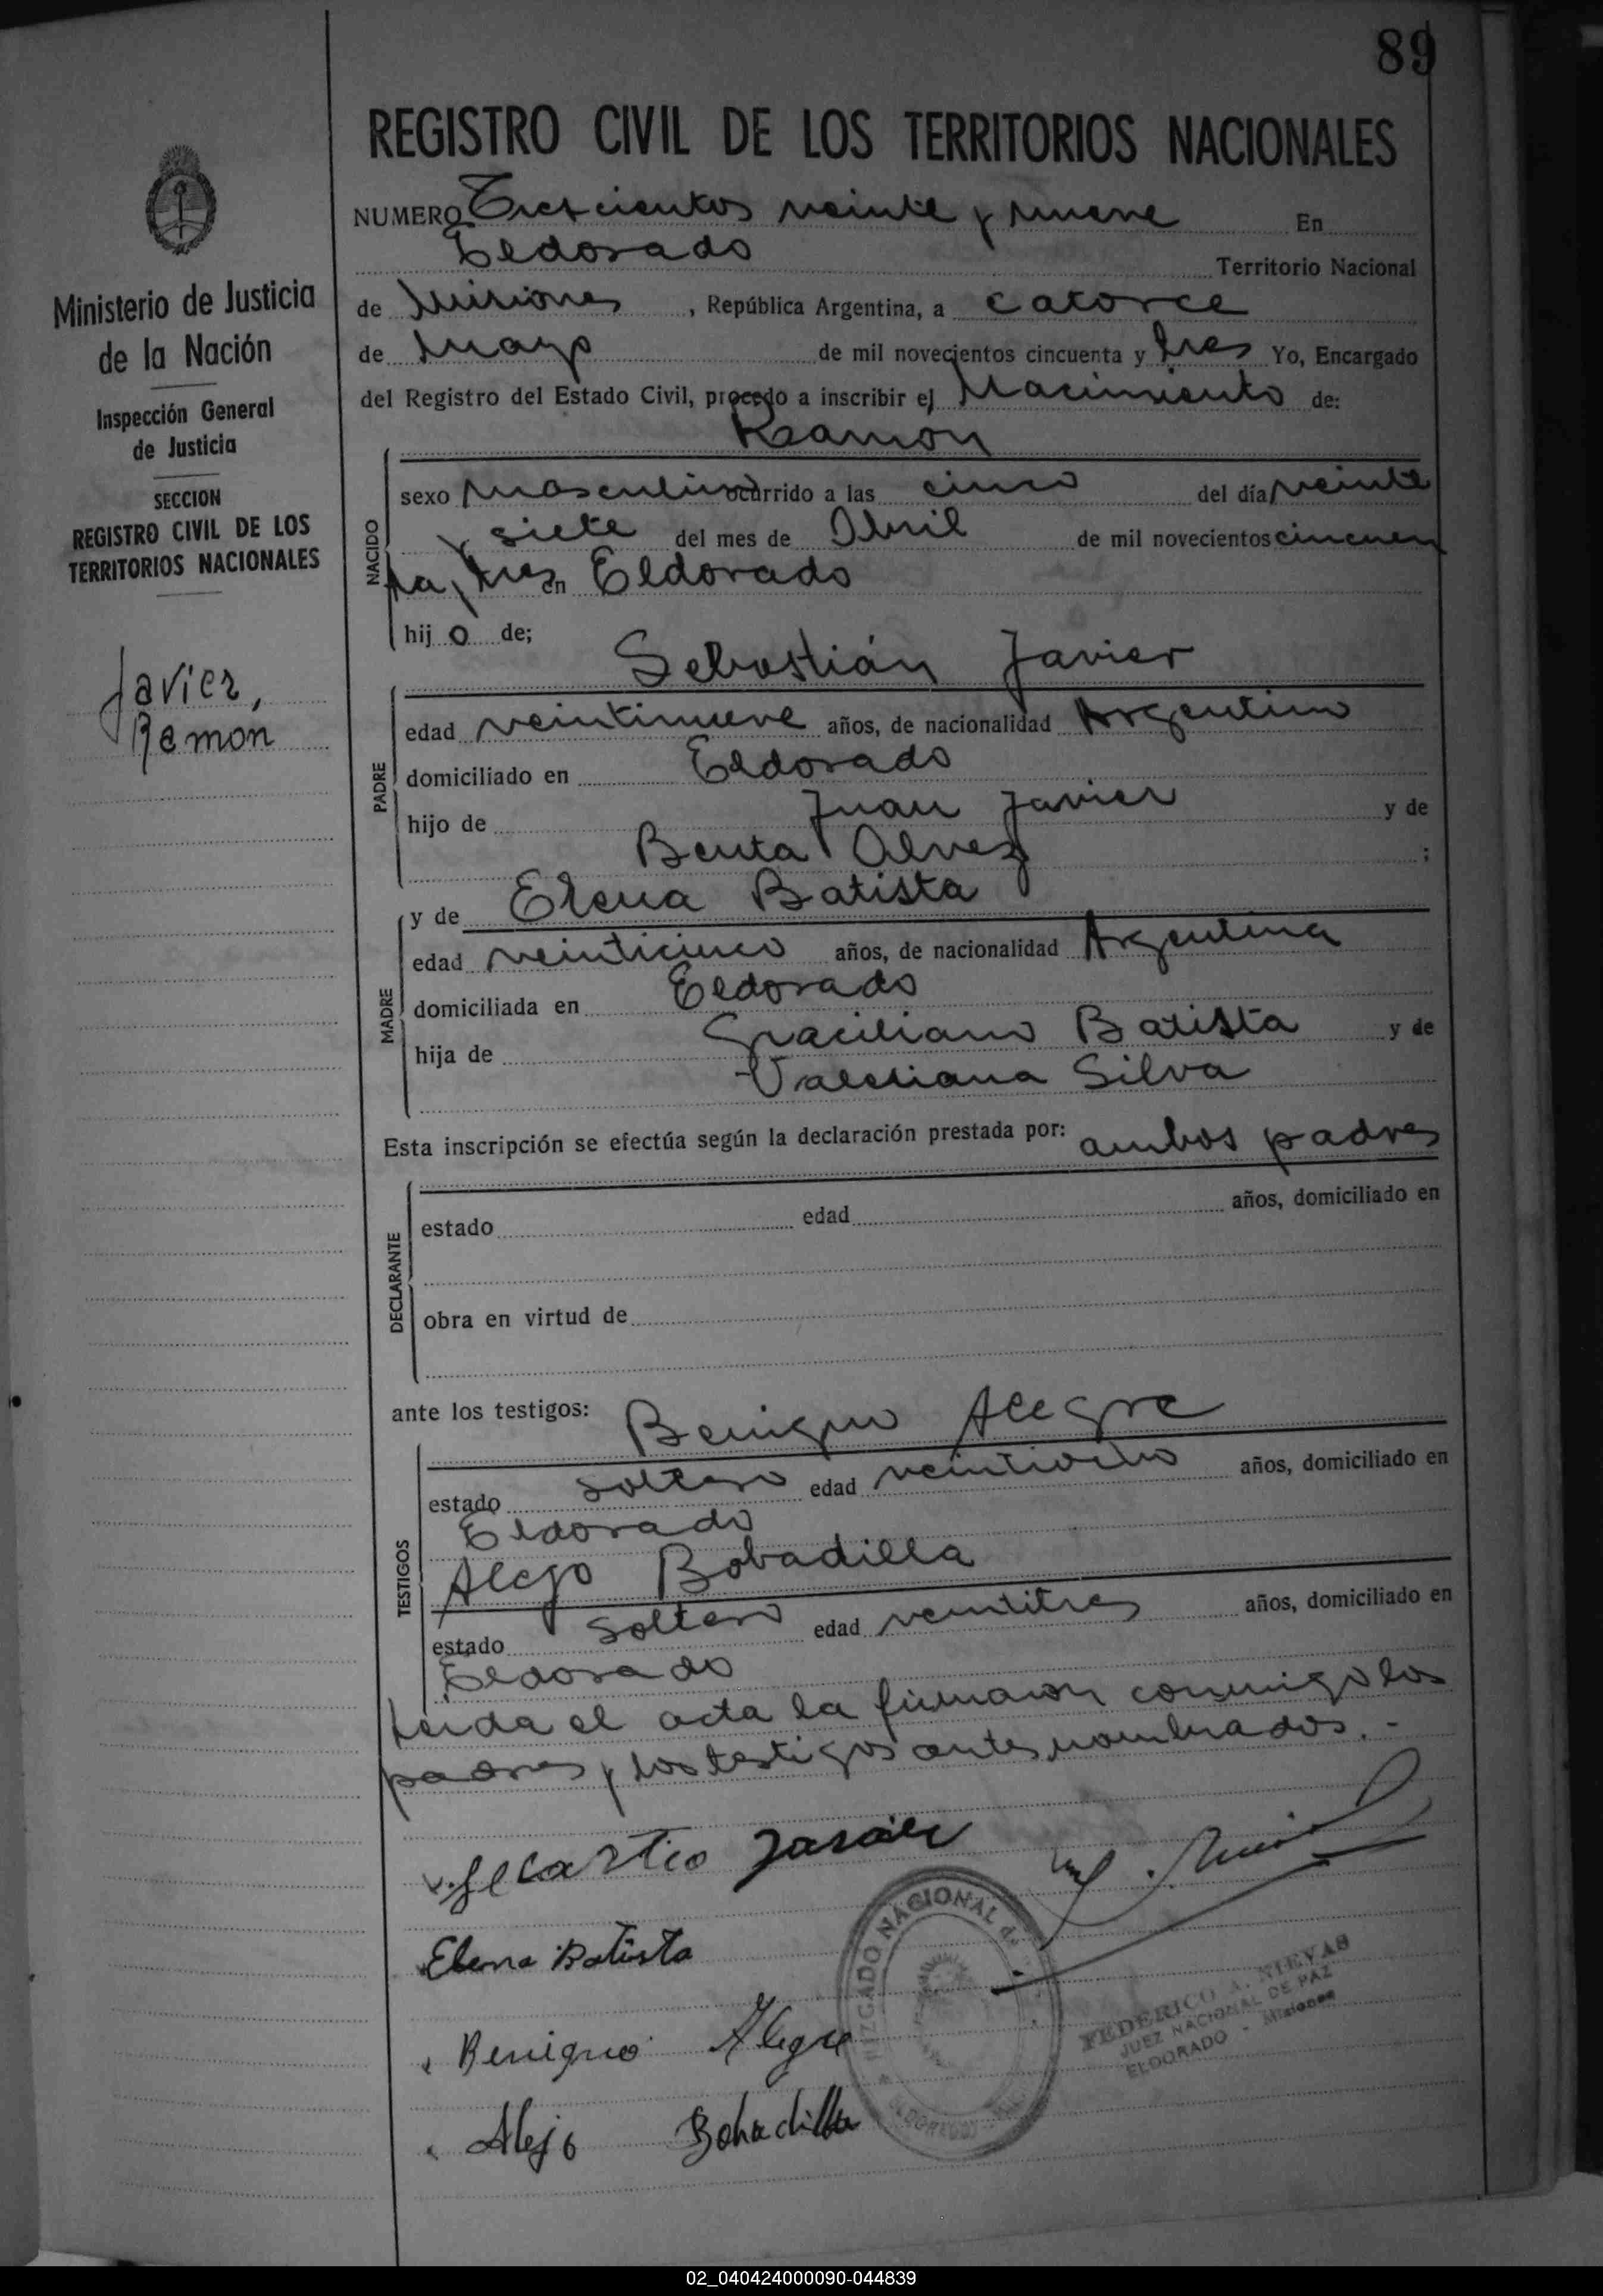 89
REGISTRO CIVIL DE LOS TERRITORIOS NACIONALES
Ministerio de Justicia
de la Nación
Inspección General
de Justicia
SECCION
REGISTRO CIVIL DE LOS
TERRITORIOS NACIONALES
Javier,
Ramon
NUMERO Trescientos veinte y nueve En
Eldorado Territorio Nacional
de Misiones, República Argentina, a catorce
de Mayo de mil novecientos cincuenta y tres Yo, Encargado
del Registro del Estado Civil, procedo a inscribir el Nacimiento de:
Ramon
NACIDO
sexo masculino ocurrido a las cinco del día veinte
y siete del mes de Abril de mil novecientos cincuen
ta y tres en Eldorado
hijo de;
Sebastián Javier
PADRE
edad veintinueve años, de nacionalidad Argentino
domiciliado en Eldorado
hijo de Juan Javier y de
Benta Alvez ;
MADRE
y de Elena Batista
edad veinticinco años, de nacionalidad Argentina
domiciliada en Eldorado
hija de Graciliano Batista y de
Valeriana Silva
Esta inscripción se efectúa según la declaración prestada por: ambos padres
DECLARANTE
estado edad años, domiciliado en
obra en virtud de
ante los testigos: Benigno Alegre
TESTIGOS
estado soltero edad veintiocho años, domiciliado en
Eldorado
Alejo Bobadilla
estado soltero edad veintitres años, domiciliado en
Eldorado
Leida el acta la firmaron conmigo los
padres y los testigos antes nombrados.-
Elena Batista
Benigno Alegre
Alejo Bobadilla
JUZGADO NACIONAL de
ELDORADO
FEDERICO A. NIEVAS
JUEZ NACIONAL DE PAZ
ELDORADO - Misiones
02_040424000090-044839